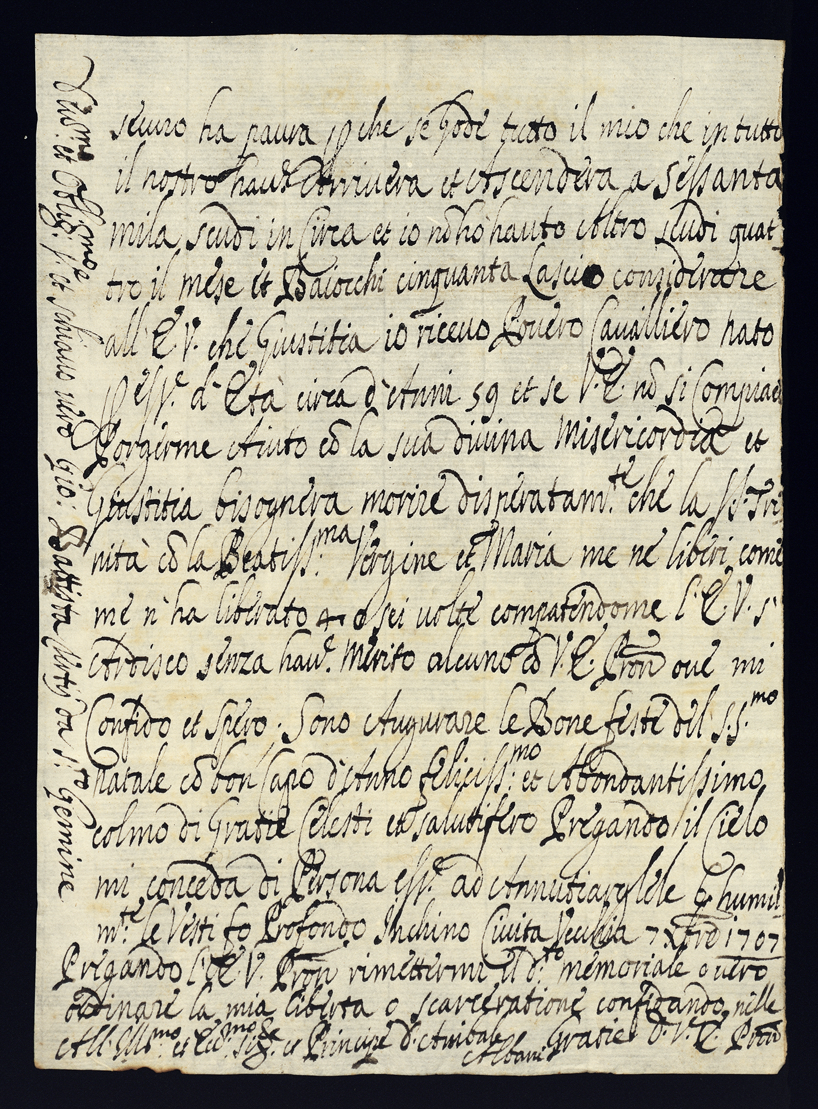 securo ha paura p che se gode tutto il mio che in tutto
il nostro hav.e Arrivera et Ascendera a Sessanta
mila scudi in Circa et io nõ ho hauto Altro scudi quat
tro il mese et Baiocchi cinquanta Lascio considerare
all' E.V. che Giustitia io ricevo Povero Cavalliero nato
p ess.e d'Età circa d'Anni 59 et se V.E. nõ si Compiac
Porgerme Aiuto cõ la sua divina Misericordia et
Giustitia bisognera morire disperatam.te che la SS. Tri
nità cõ la Beatiss.ma Vergine et Maria me ne liberi come
me n'ha liberato 4 o sei volte compatendome l'E.V. s'
Ardisco senza hav.e Merito alcuno cõ V.E. Prõn ove mi
Confido et Spero. Sono Augurare le Bone feste del S.S.mo
natale cõ bon Capo d'Anno feliciss.mo et Abondantissimo
colmo di Gratie Celesti et salutifero Pregando il Cielo
mi conceda di Persona ess.e ad Annutiarglele q humil
m.te le Vesti fo Profondo Inchino Civita Vecchia 7 Xbre 1707
Pregando l'E.V. Prõn rimettermi il d.to memoriale overo
ordinare la mia liberta o scarceratione confidando nelle
Gratie D.V.E. Prõn
All.Ill.mo et Ecc.mo Sig.e et Principe D. Anibale
Albani
Dev.mo et Oblig.mo s.e et schiavo vero Gio: Battista da S.to Gemine